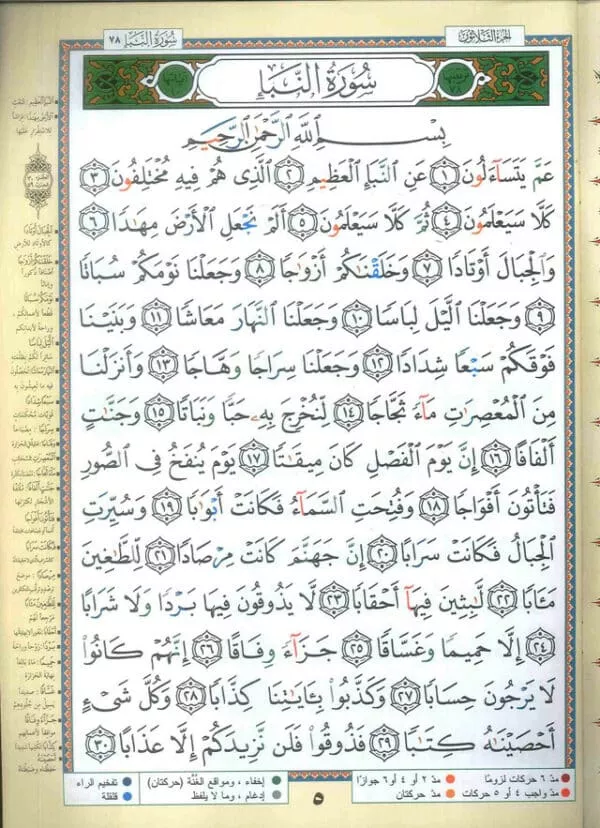 سُورَةُ النَّبَإِ ٧٨
الجزء الثلاثون
سُورَةُ النَّبَإِ
بِسْمِ اللَّهِ الرَّحْمَٰنِ الرَّحِيمِ
عَمَّ يَتَسَآءَلُونَ ١ عَنِ ٱلنَّبَإِ ٱلْعَظِيمِ ٢ ٱلَّذِى هُمْ فِيهِ مُخْتَلِفُونَ ٣
كَلَّا سَيَعْلَمُونَ ٤ ثُمَّ كَلَّا سَيَعْلَمُونَ ٥ أَلَمْ نَجْعَلِ ٱلْأَرْضَ مِهَٰدًا ٦
وَٱلْجِبَالَ أَوْتَادًا ٧ وَخَلَقْنَٰكُمْ أَزْوَٰجًا ٨ وَجَعَلْنَا نَوْمَكُمْ سُبَاتًا
٩ وَجَعَلْنَا ٱلَّيْلَ لِبَاسًا ١٠ وَجَعَلْنَا ٱلنَّهَارَ مَعَاشًا ١١ وَبَنَيْنَا
فَوْقَكُمْ سَبْعًا شِدَادًا ١٢ وَجَعَلْنَا سِرَاجًا وَهَّاجًا ١٣ وَأَنزَلْنَا
مِنَ ٱلْمُعْصِرَٰتِ مَآءً ثَجَّاجًا ١٤ لِّنُخْرِجَ بِهِۦ حَبًّا وَنَبَاتًا ١٥ وَجَنَّٰتٍ
أَلْفَافًا ١٦ إِنَّ يَوْمَ ٱلْفَصْلِ كَانَ مِيقَٰتًا ١٧ يَوْمَ يُنفَخُ فِى ٱلصُّورِ
فَتَأْتُونَ أَفْوَاجًا ١٨ وَفُتِحَتِ ٱلسَّمَآءُ فَكَانَتْ أَبْوَٰبًا ١٩ وَسُيِّرَتِ
ٱلْجِبَالُ فَكَانَتْ سَرَابًا ٢٠ إِنَّ جَهَنَّمَ كَانَتْ مِرْصَادًا ٢١ لِّلطَّٰغِينَ
مَـَٔابًا ٢٢ لَّٰبِثِينَ فِيهَآ أَحْقَابًا ٢٣ لَّا يَذُوقُونَ فِيهَا بَرْدًا وَلَا شَرَابًا
٢٤ إِلَّا حَمِيمًا وَغَسَّاقًا ٢٥ جَزَآءً وِفَاقًا ٢٦ إِنَّهُمْ كَانُوا۟
لَا يَرْجُونَ حِسَابًا ٢٧ وَكَذَّبُوا۟ بِـَٔايَٰتِنَا كِذَّابًا ٢٨ وَكُلَّ شَىْءٍ
أَحْصَيْنَٰهُ كِتَٰبًا ٢٩ فَذُوقُوا۟ فَلَن نَّزِيدَكُمْ إِلَّا عَذَابًا ٣٠
مدّ ٦ حركات لزومًا مدّ ٢ أو ٤ أو ٦ جوازًا إخفاء، ومواقع الغُنَّة (حركتان) تفخيم الراء
مدّ واجب ٤ أو ٥ حركات مدّ حركتان إدغام، وما لا يلفظ قلقلة
٥